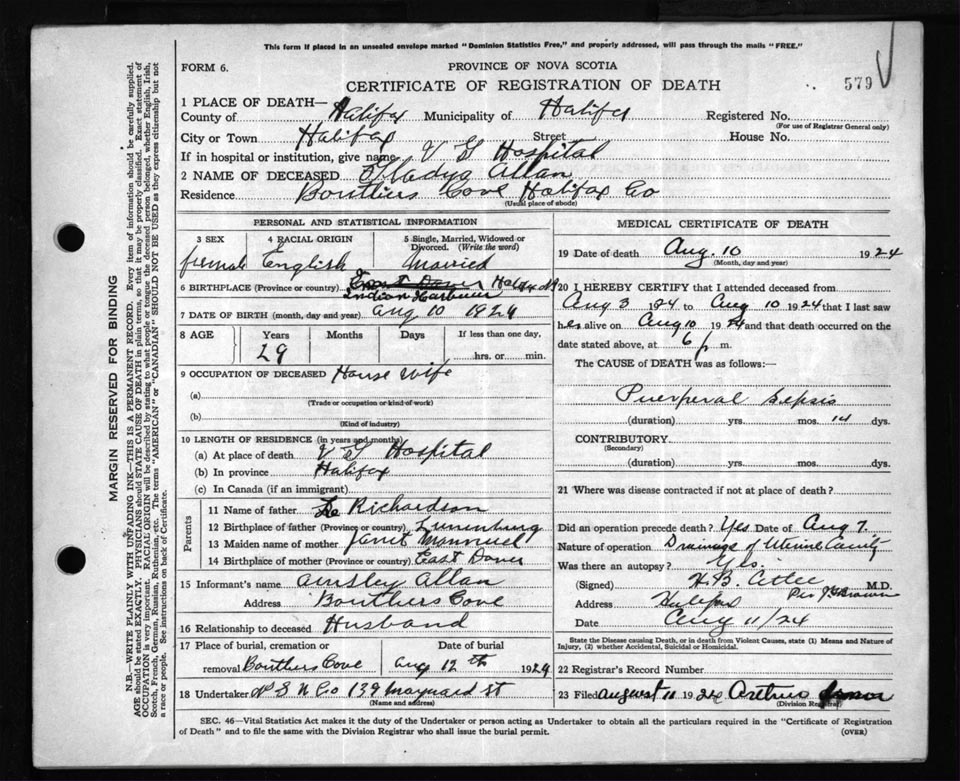 This form if placed in an unsealed envelope marked "Dominion Statistics Free," and properly addressed, will pass through the mails "FREE."
FORM 6.
PROVINCE OF NOVA SCOTIA
CERTIFICATE OF REGISTRATION OF DEATH
579
1 PLACE OF DEATH—
County of Halifax Municipality of Halifax Registered No.
(For use of Registrar General only)
City or Town Halifax Street House No.
If in hospital or institution, give name V G Hospital
2 NAME OF DECEASED Gladys Allan
Residence Boutliers Cove Halifax Co
(Usual place of abode)
PERSONAL AND STATISTICAL INFORMATION
3 SEX 4 RACIAL ORIGIN 5 Single, Married, Widowed or Divorced. (Write the word)
female English Married
6 BIRTHPLACE (Province or country) East Dover Halifax
Indian Harbour
7 DATE OF BIRTH (month, day and year) Aug 10 1924
8 AGE Years Months Days If less than one day,
29 hrs. or min.
9 OCCUPATION OF DECEASED House Wife
(a)
(Trade or occupation or kind of work)
(b)
(Kind of industry)
10 LENGTH OF RESIDENCE (in years and months)
(a) At place of death V G Hospital
(b) In province Halifax
(c) In Canada (if an immigrant)
Parents
11 Name of father Richardson
12 Birthplace of father (Province or country) Lunenburg
13 Maiden name of mother Janet Mannuel
14 Birthplace of mother (Province or country) East Dover
15 Informant's name Ainsley Allan
Address Boutliers Cove
16 Relationship to deceased Husband
17 Place of burial, cremation or removal Date of burial
Boutliers Cove Aug 12th 1924
18 Undertaker N S U Co 139 Maynard St
(Name and address)
MEDICAL CERTIFICATE OF DEATH
19 Date of death Aug. 10 1924
(Month, day and year)
20 I HEREBY CERTIFY that I attended deceased from
Aug 3 1924 to Aug 10 1924 that I last saw
her alive on Aug 10 1924 and that death occurred on the
date stated above, at 6 p m.
The CAUSE of DEATH was as follows:—
Puerperal Sepsis
(duration) yrs. mos. 14 dys.
CONTRIBUTORY
(Secondary)
(duration) yrs. mos. dys.
21 Where was disease contracted if not at place of death?
Did an operation precede death? Yes Date of Aug 7.
Nature of operation Drainage of Uterine Cavity
Was there an autopsy? Yes.
(Signed) H.B. Atlee M.D.
Address Halifax Per
Date Aug 11/24
State the Disease causing Death, or in death from Violent Causes, state (1) Means and Nature of Injury, (2) whether Accidental, Suicidal or Homicidal.
22 Registrar's Record Number
23 Filed August 11 1924
(Division Registrar)
SEC. 46—Vital Statistics Act makes it the duty of the Undertaker or person acting as Undertaker to obtain all the particulars required in the "Certificate of Registration
of Death" and to file the same with the Division Registrar who shall issue the burial permit. (OVER)
MARGIN RESERVED FOR BINDING
N.B.—WRITE PLAINLY WITH UNFADING INK—THIS IS A PERMANENT RECORD. Every item of information should be carefully supplied.
AGE should be stated EXACTLY. PHYSICIANS should STATE CAUSE OF DEATH in plain terms, so that it may be properly classified. Exact statement of
OCCUPATION is very important. RACIAL ORIGIN will be described by stating to what people or tongue the deceased person belonged, whether English, Irish,
Scotch, French, German, Russian, Ruthenian, etc. The terms "AMERICAN" or "CANADIAN" SHOULD NOT BE USED as they express citizenship but not
a race or people. See instructions on back of Certificate.